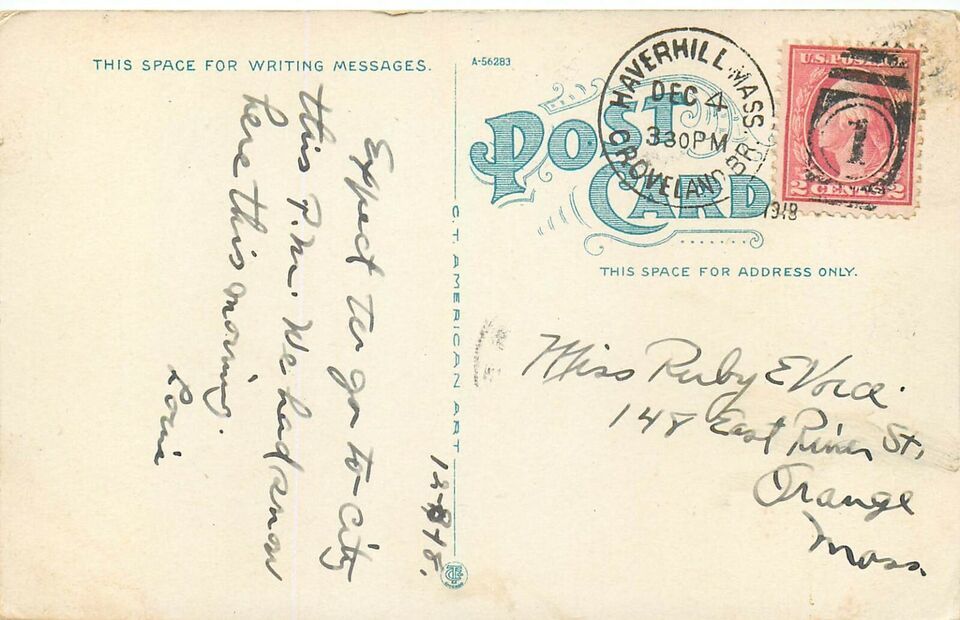 THIS SPACE FOR WRITING MESSAGES.
A-56283
POST
CARD
THIS SPACE FOR ADDRESS ONLY.
HAVERHILL, MASS.
DEC 4
330PM
GROVELAND BR.
1918
U.S. POSTAGE
2 CENTS 2
1
C.T. AMERICAN ART
Expect to go to city
this P.M. We had snow
here this morning.
Miss Ruby E
148 East River St,
Orange
Mass.